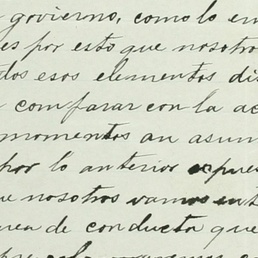 govierno, como lo en
es por esto que nosotro
dos esos elementos dis
comparar con la ac
momentos an asum
por lo anterior expues
ue nosotros vamos ent
nea de conducta que